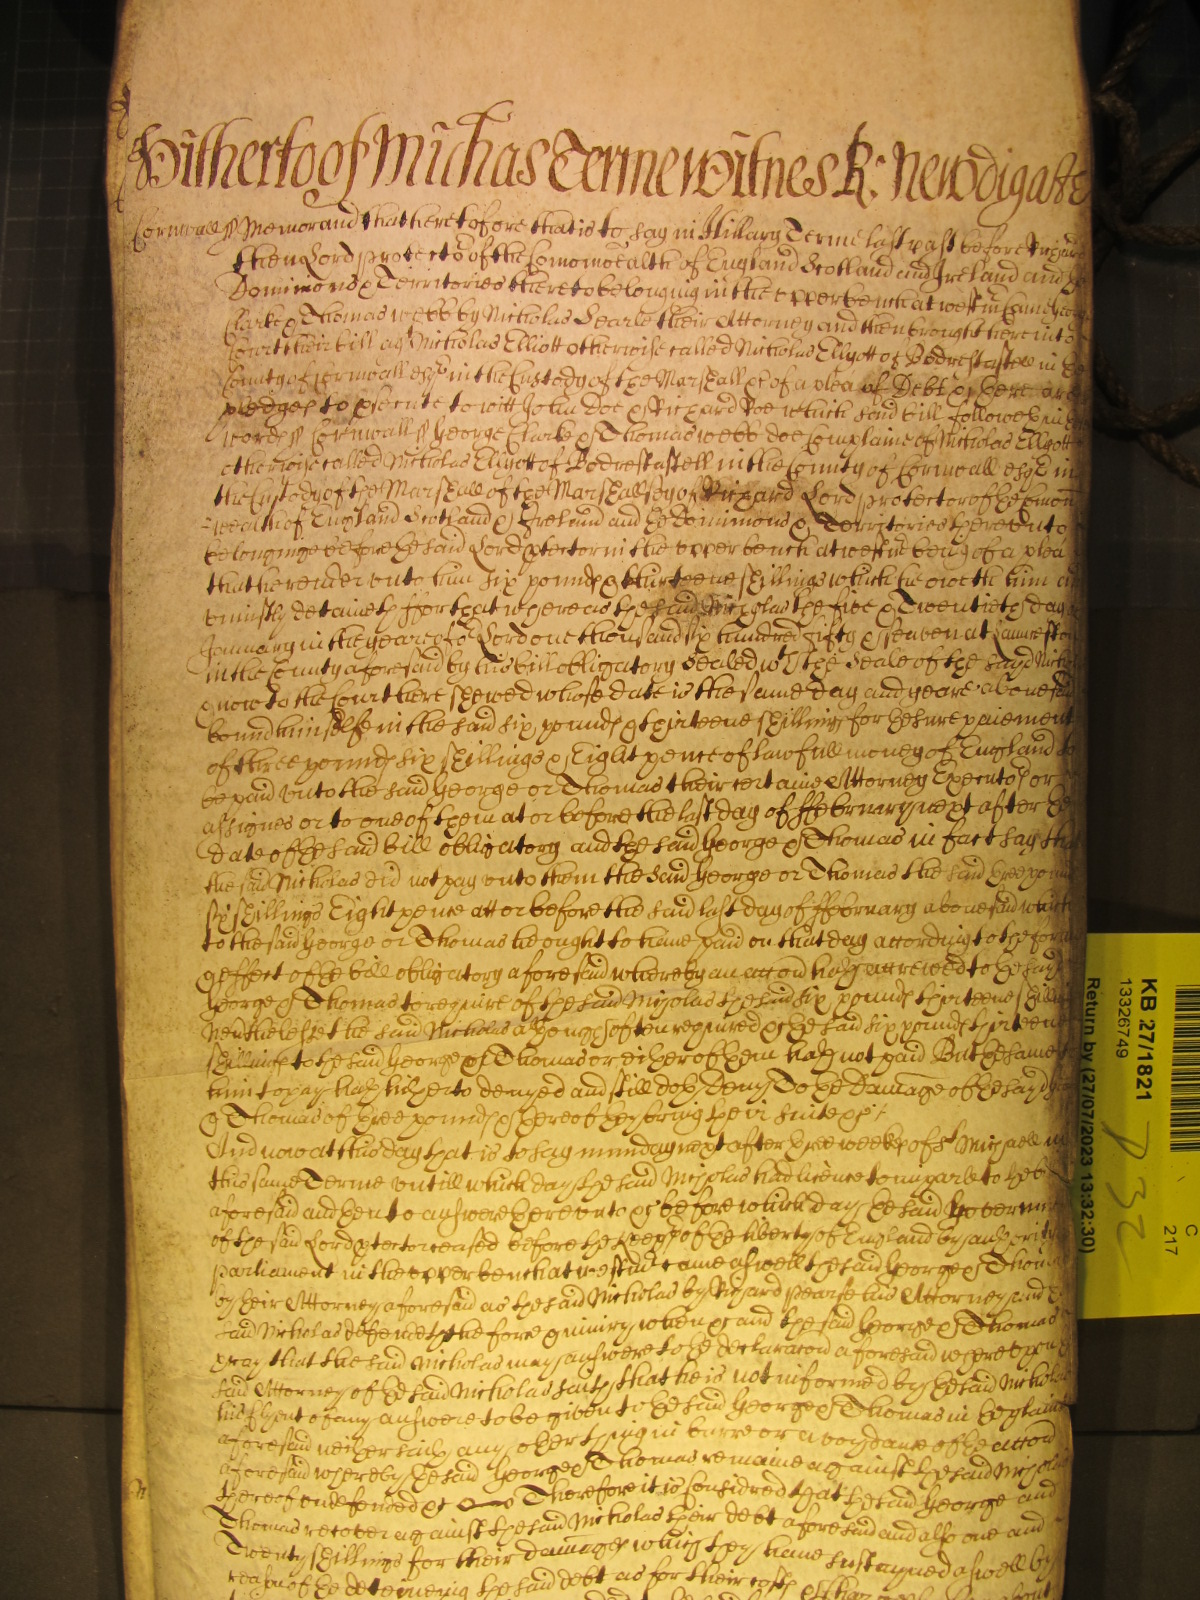 Hitherto of Michas Terme Witnes R: Newdigate
Cornwall ss Memorand that heretofore that is to say in Hillary Terme last past before Richard
then Lord protector of the Comonwealth of England Scotland and Ireland and the
Dominions & Territories thereto belonging in the upper bench at westm came George
Clarke & Thomas webb by Nicholas Searle their Attorney and then brought here into
Court their bill agt Nicholas Elliott otherwise called Nicholas Ellyott of Bodrestastell in the
County of Cornwall esqr in the Custody of the Marshall &c of a plea of Debt & there are
pledges to psecute to witt John Doe & Richard Roe which said bill followeth in these
words ss Cornwall ss George Clarke & Thomas webb doe Complaine of Nicholas Ellyott
otherwise called Nicholas Ellyott of Bodrestastell in the County of Cornwall esqr in
the Custody of the Marshall of the Marshallsey of Richard Lord protector of the Comon
wealth of England Scotland & Ireland and the Dominions & Territories thereunto
belonginge before the said Lord ptector in the upper bench at westmr being of a plea
that he render unto him six pounds & thirteene shillings which he oweth him and
uniustly detaineth ffor that whereas the said Nicholas the five & Twentieth day of
January in the yeare of or Lord one thousand six hundred fifty & seaven at Launceston
in the County aforesaid by his bill obligatory Sealed wth the Seale of the sayd Nicholas
& now to the Court here shewed whose date is the same day and yeare abovesaid
bound himselfe in the said six pounds & thirteene shillings for the sure paiement
of three pounds six shillings & Eight pence of lawfull money of England to
be paid unto the said George or Thomas their certaine Attorney Executors or
assignes or to one of them at or before the last day of ffebruary next after the
date of the said bill obligatory and the said George & Thomas in fact say that
the said Nicholas did not pay unto them the said George or Thomas the said three pounds
six shillings Eight pence att or before the said last day of ffebruary abovesaid which
to the said George or Thomas he ought to have paid on that day according to the forme
& effect of the bill obligatory aforesaid whereby an accon hath accrewed to the said
George & Thomas to require of the said Nicholas the said six pounds thirteene shillings
Neverthelesse the said Nicholas although often required & the said six pounds thirteene
shillings to the said George & Thomas or either of them hath not paid But the same
him to pay hath hitherto denyed and still doth deny To the Damage of the said George
& Thomas of three pounds & thereof they bring their suite &c
And now at this day that is to say munday next after three weekes of St Michaell in
this same Terme untill which day the said Nicholas had licence to imparle to the bill
aforesaid and then to answere thereunto &c before which day the said Governmt
of the said Lord ptector ceased before the keeprs of the liberty of England by authority of
parliament in the upper bench at westmr came aswell the said George & Thomas
by their Attorney aforesaid as the said Nicholas by Richard pearse his Attorney and the
said Nicholas defendeth the force & iniury when &c and the said George & Thomas
pray that the said Nicholas may answere to the declaracon aforesaid whereupon the
said Attorney of the said Nicholas saith that he is not informed by the said Nicholas
his Clyent of any answere to be given to the said George & Thomas in the plaint
aforesaid neither saith any other thing in barre or avoydance of the accon
aforesaid whereby the said George & Thomas remaine against the said Nicholas
thereof undefended &c Therefore it is considred that the said George and
Thomas recover against the said Nicholas their debt aforesaid and also one and
Twenty shillings for their damages which they have sustayned aswell by
reason of the deteineing the said debt as for their costs
KB 27/1821
13326749
Return by (27/07/2023 13:32:30)
D 32
C
217